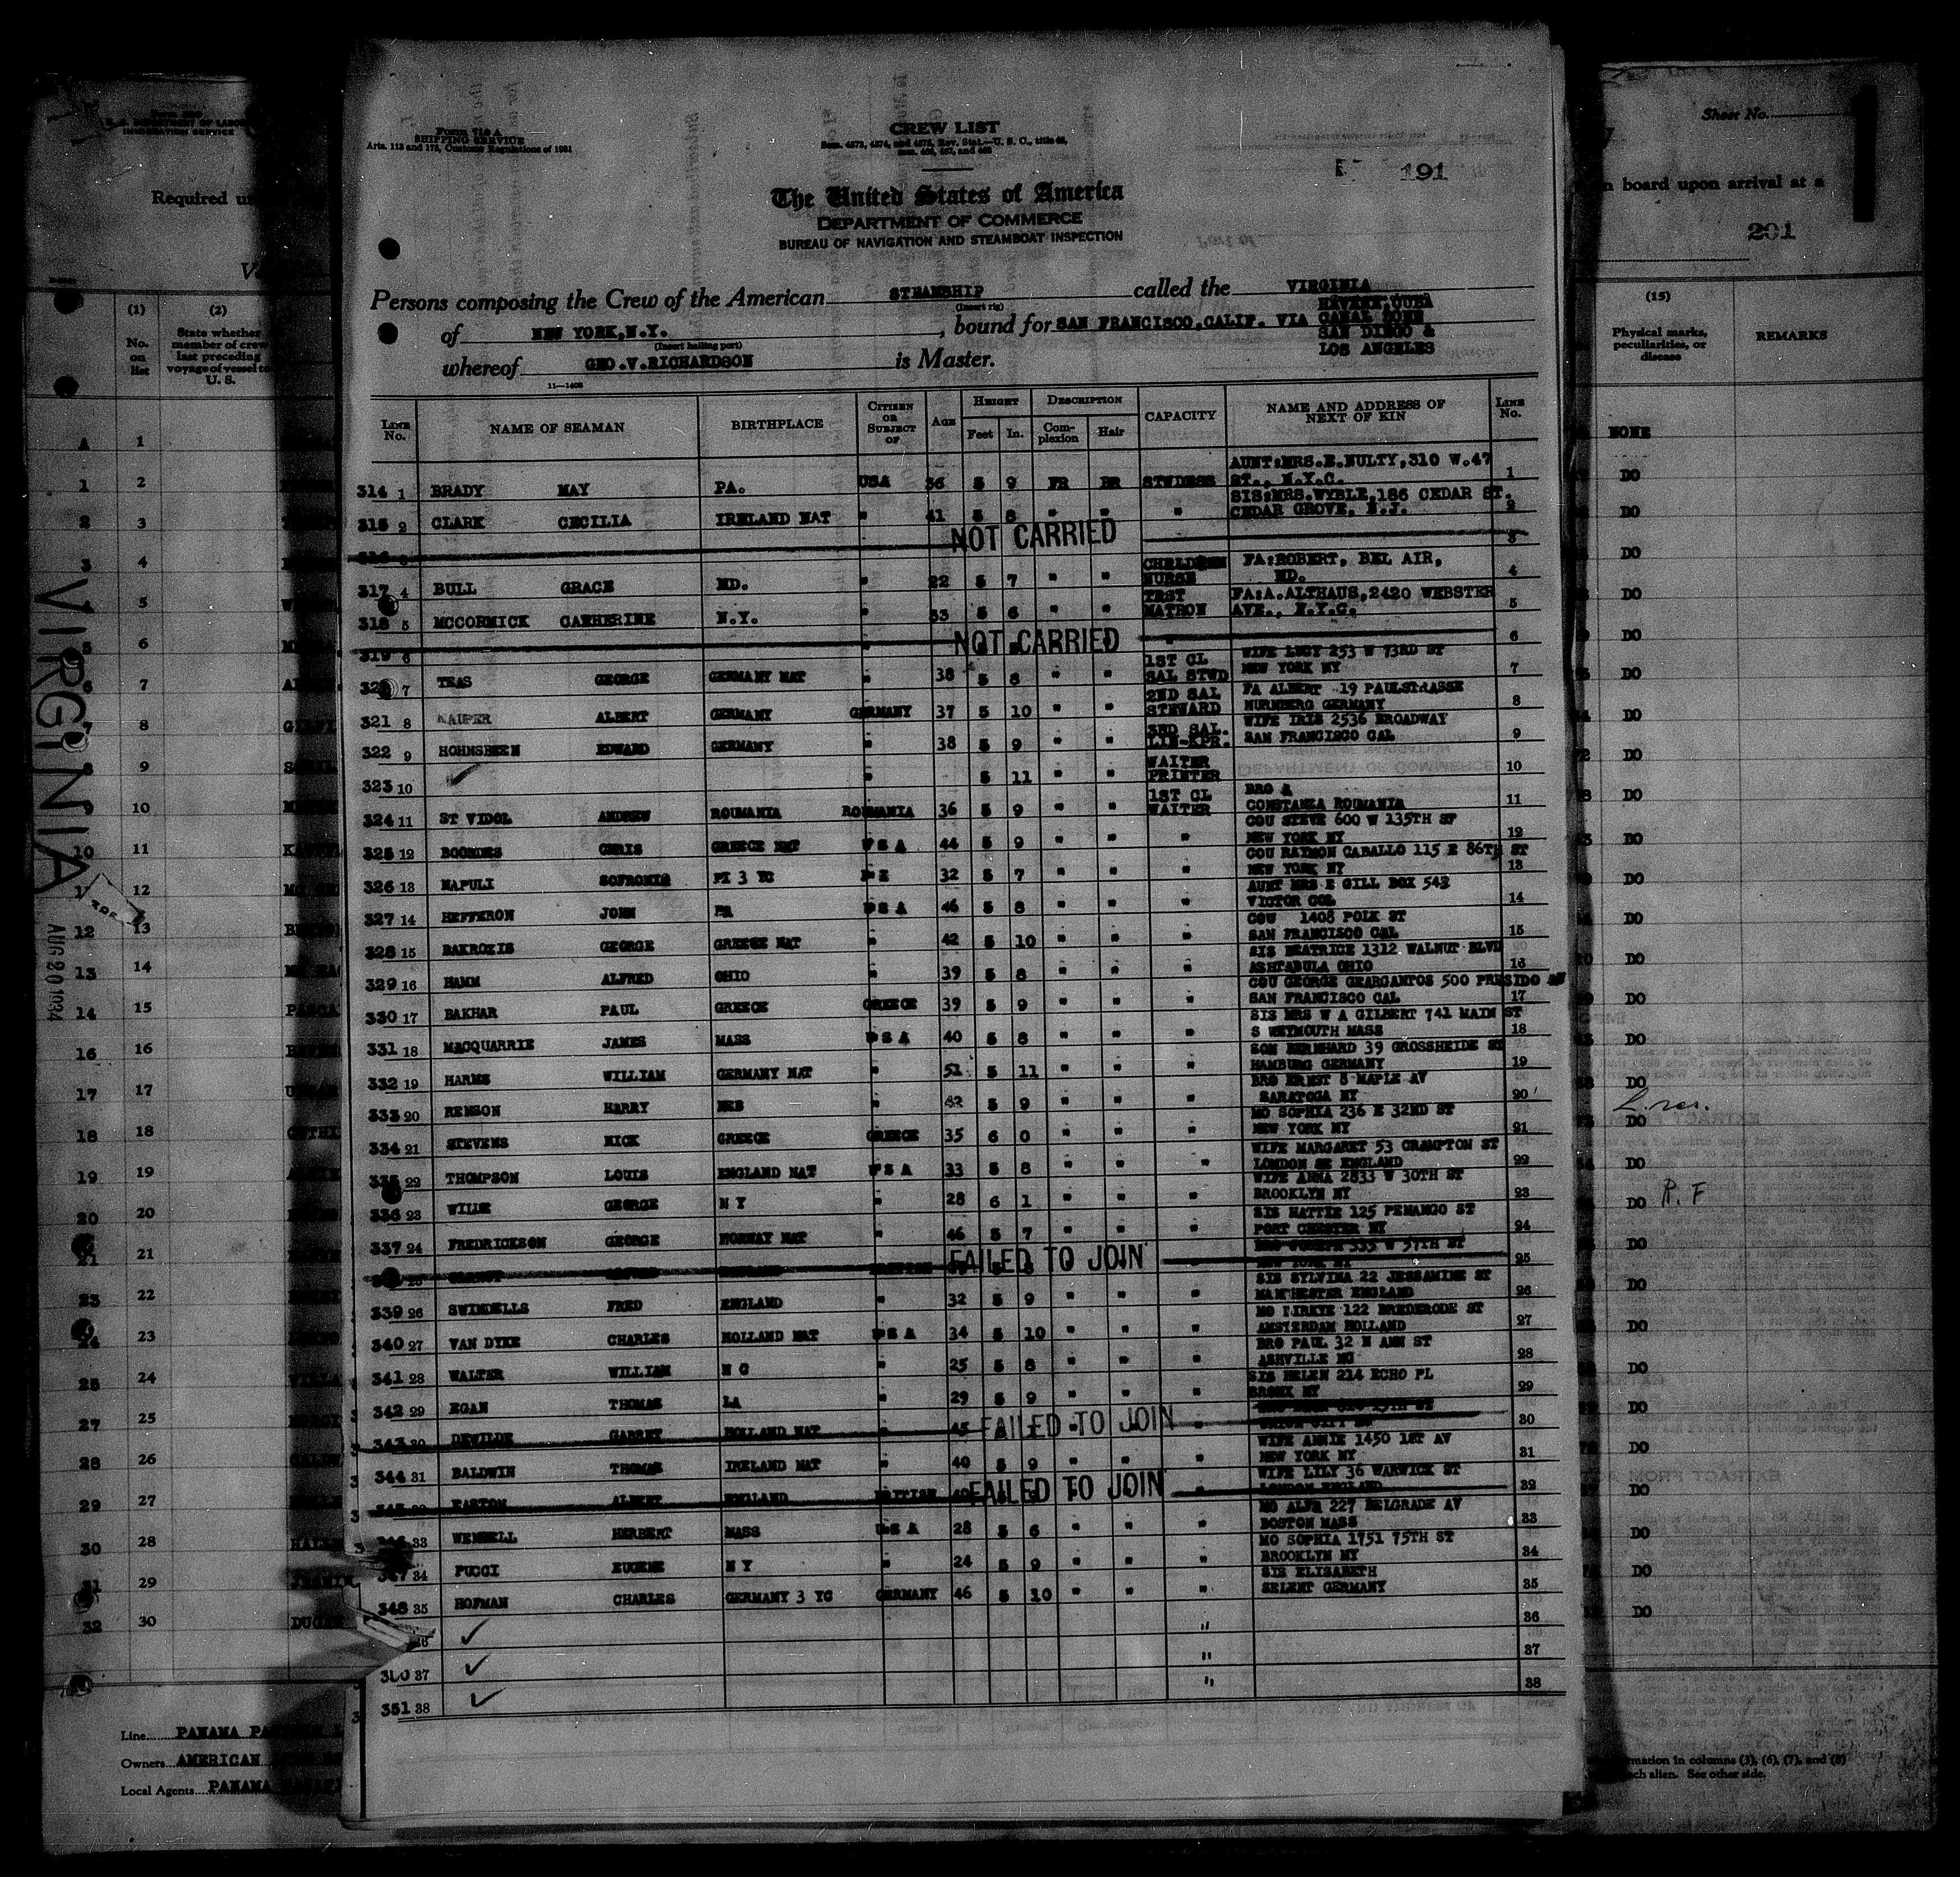 Form 710 A
SHIPPING SERVICE
Arts. 113 and 175, Customs Regulations of 1931
CREW LIST
191
The United States of America
DEPARTMENT OF COMMERCE
BUREAU OF NAVIGATION AND STEAMBOAT INSPECTION
Persons composing the Crew of the American STEAMSHIP called the VIRGINIA
(Insert rig)
of NEW YORK, N.Y., bound for SAN FRANCISCO, CALIF. VIA HAVANA CUBA
CANAL ZONE
SAN DIEGO &
LOS ANGELES
(Insert hailing port)
whereof GEO. V. RICHARDSON is Master.
11—1408
LINE No. NAME OF SEAMAN BIRTHPLACE CITIZEN OR SUBJECT OF AGE HEIGHT Feet In. DESCRIPTION Complexion Hair CAPACITY NAME AND ADDRESS OF NEXT OF KIN LINE No.
314 1 BRADY MAY PA. USA 36 5 9 FR BR STWDESS AUNT:MRS.E.NULTY,310 W.47 ST., N.Y.C. 1
315 2 CLARK CECILIA IRELAND NAT " 41 5 8 " " " SIS:MRS.WYBLE,186 CEDAR ST. CEDAR GROVE, N.J. 2
316 3 NOT CARRIED 3
317 4 BULL GRACE MD. " 22 5 7 " " CHILDREN NURSE FA:ROBERT, BEL AIR, MD. 4
318 5 MCCORMICK CATHERINE N.Y. " 33 5 6 " " MATRON FA:A.ALTHAUS,2420 WEBSTER AVE., N.Y.C. 5
319 6 NOT CARRIED " 6
320 7 TEAS GEORGE GERMANY NAT " 38 5 8 " " 1ST CL SAL STWD WIFE LUCY 253 W 73RD ST NEW YORK NY 7
321 8 KAUPER ALBERT GERMANY GERMANY 37 5 10 " " 2ND SAL STEWARD FA ALBERT 19 PAULSTRASSE NURNBERG GERMANY 8
322 9 HOHNSBEEN EDWARD GERMANY " 38 5 9 " " 3RD SAL. LIN-KPR. WIFE IRIS 2536 BROADWAY SAN FRANCISCO CAL 9
323 10 " 5 11 " " WAITER PRINTER 10
324 11 ST VIDOL ANDREW ROUMANIA ROUMANIA 36 5 9 " " 1ST CL WAITER BRO A CONSTANZA ROUMANIA 11
325 12 BOORDES CHRIS GREECE NAT U S A 44 5 9 " " " COU STEVE 600 W 135TH ST NEW YORK NY 12
326 13 NAPULI SOFRONIO PI 3 YC P I 32 5 7 " " " COU RAYMON CABALLO 115 E 86TH ST NEW YORK NY 13
327 14 HEFFERON JOHN PA U S A 46 5 8 " " " AUNT MRS E GILL BOX 543 VICTOR COL 14
328 15 BAKROZIS GEORGE GREECE NAT " 42 5 10 " " " COU 1408 POLK ST SAN FRANCISCO CAL 15
329 16 HAMM ALFRED OHIO " 39 5 8 " " " SIS BEATRICE 1312 WALNUT BLVD ASHTABULA OHIO 16
330 17 BAKHAR PAUL GREECE GREECE 39 5 9 " " " COU GEORGE GEARGANTOS 500 PRESIDO AV SAN FRANCISCO CAL 17
331 18 MACQUARRIE JAMES MASS U S A 40 5 8 " " " SIS MRS W A GILBERT 741 MAIN ST S WEYMOUTH MASS 18
332 19 HARMS WILLIAM GERMANY NAT " 51 5 11 " " " SON BERNHARD 39 GROSSHEIDE ST HAMBURG GERMANY 19
333 20 REMSON HARRY NEB " 42 5 9 " " " BRO ERNEST 8 MAPLE AV SARATOGA NY 20
334 21 STEVENS NICK GREECE GREECE 35 6 0 " " " MO SOPHIA 236 E 32ND ST NEW YORK NY 21
335 22 THOMPSON LOUIS ENGLAND NAT U S A 33 5 8 " " " WIFE MARGARET 53 CRAMPTON ST LONDON SE ENGLAND 22
336 23 WILLE GEORGE N Y " 28 6 1 " " " WIFE ANNA 2833 W 30TH ST BROOKLYN NY 23
337 24 FREDRICKSON GEORGE NORWAY NAT " 46 5 7 " " " SIS HATTIE 125 PENANGO ST PORT CHESTER NY 24
25 FAILED TO JOIN 333 W 57TH ST NEW YORK NY 25
339 26 SWINDELLS FRED ENGLAND " 32 5 9 " " " SIS SYLVINA 22 JESSAMINE ST MANCHESTER ENGLAND 26
340 27 VAN DYKE CHARLES HOLLAND NAT U S A 34 5 10 " " " MO 122 BREDERODE ST AMSTERDAM HOLLAND 27
341 28 WALTER WILLIAM N C " 25 5 8 " " " BRO PAUL 32 N ANN ST ASHVILLE NC 28
342 29 EGAN THOMAS LA " 29 5 9 " " " SIS HELEN 214 ECHO PL BRONX NY 29
343 30 DEWILDE GARRET HOLLAND NAT " 45 FAILED TO JOIN " 30
344 31 BALDWIN THOMAS IRELAND NAT " 40 5 9 " " " WIFE ANNIE 1450 1ST AV NEW YORK NY 31
345 32 EASTON ALBERT ENGLAND BRITISH FAILED TO JOIN WIFE LILY 36 WARWICK ST LONDON ENGLAND 32
346 33 WENSELL HERBERT MASS U S A 28 5 6 " " " MO ALFA 227 BELGRADE AV BOSTON MASS 33
347 34 PUCCI EUGENE N Y " 24 5 9 " " " MO SOPHIA 1751 75TH ST BROOKLYN NY 34
348 35 HOFMAN CHARLES GERMANY 3 YC GERMANY 46 5 10 " " " SIS ELISABETH SELENT GERMANY 35
36 " 36
37 " 37
351 38 " 38
Required
(1) (2)
No. on list
State whether member of crew last preceding voyage of vessel to U. S.
VIRGINIA
AUG 20 1934
Line PANAMA
Owners AMERICAN
Local Agents PANAMA
Sheet No.
1
board upon arrival at a
201
(15)
Physical marks, peculiarities, or disease
REMARKS
NONE
DO
R. F
mation in columns (3), (6), (7), and (8)
ach alien. See other side.